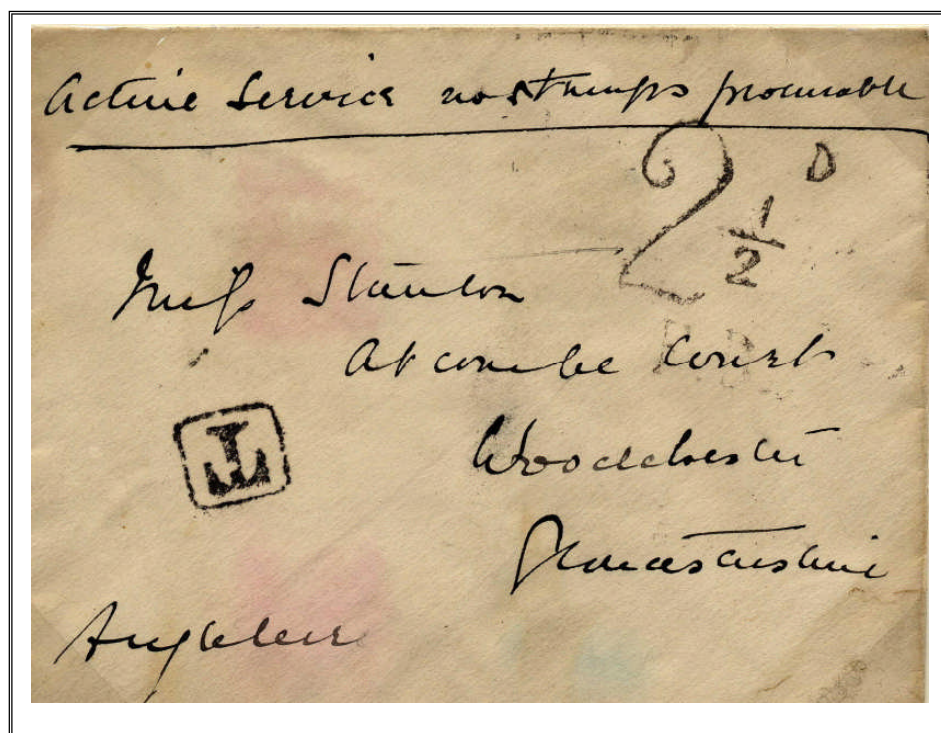 Active Service no stamps procurable
2 1/2 D
Miss Stanton
Atcombe Court
T
Woodchester
Gloucestershire
Angleterre